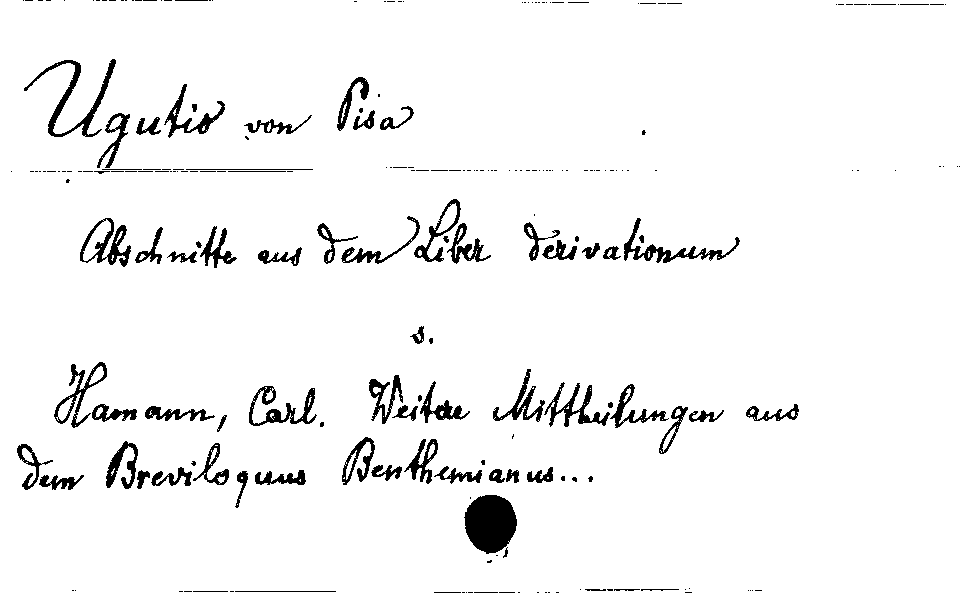 Ugutio von Pisa
Abschnitte aus dem Liber derivationum
s.
Hamann, Carl. Weitere Mittheilungen aus
dem Breviloquus Benthemianus...